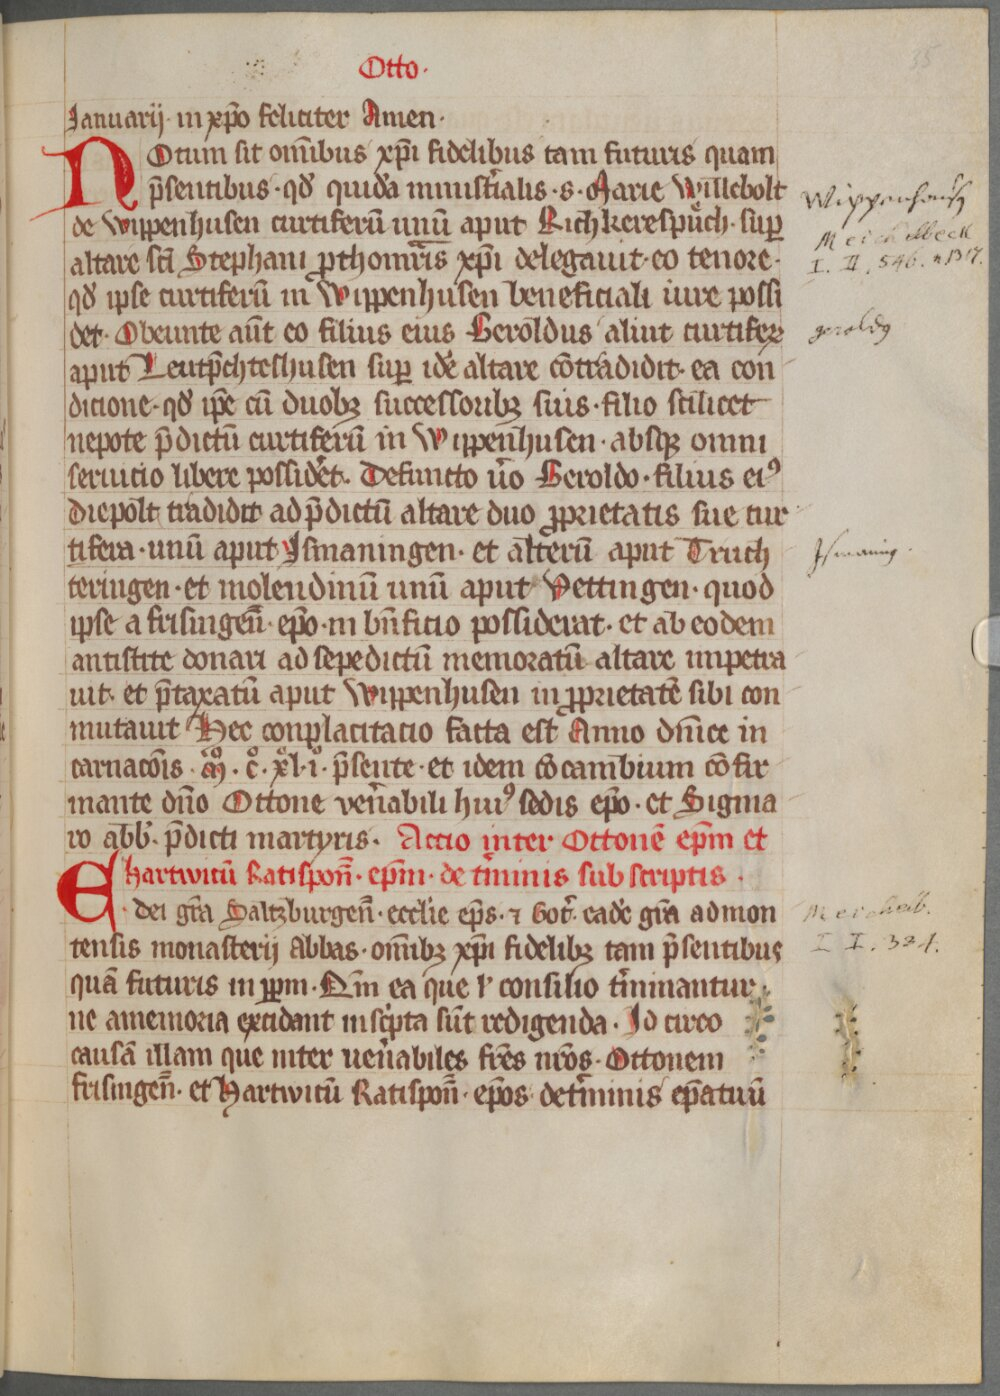 Otto.
Januarij. in xp̄o feliciter Amen.
Notum sit om̄ibus xp̄i fidelibus tam futuris quam
p̄sentibus. qd̄ quida minist̄ialis. s. Marie Willebolt
de Wippenhusen curtiferū unū aput Richkerespuͦch. suꝑ
altare sc̄i Stephani ꝓthomr̄is xp̄i delegauit. eo tenore.
qd̄ ipse curtiferū in Wippenhusen beneficiali iure possi
det. Obeunte aūt eo filius eius Geroldus aliut curtifeꝝ
aput Leutp̄chteshusen suꝑ idē altare cōtradidit. ea con
dicione. qd̄ ip̄e cū duobꝫ successoribꝫ suis. filio scilicet
nepote p̄dictū curtiferū in Wippenhusen. absqꝫ omni
seruicio libere possid̄et. Defuncto ūo Geroldo. filius eiꝰ
Diepolt tradidit ad p̄dictū altare duo ꝓprietatis sue cur
tifera. unū aput Ysmaningen. et alt̄erū aput Truch
teringen. et molendinū unū aput Vettingen. quod
ipse a frisingen̄. ep̄o. in bn̄ficio possiderat. et ab eodem
antistite donari ad sepedictū memoratū altare impetra
uit. et p̄taxatū aput Wippenhusen in ꝓprietatē sibi con
mutauit Hec conplacitacio facta est Anno dn̄ice in
carnacōis. mͦ. cͦ. xͦl. iͦ. p̄sente. et idem cōcambium cōfir
mante dn̄o Ottone ven̄abili huiꝰ sedis ep̄o. et Sigma
ro abb̄. p̄dicti martyris. Actio inter Ottonē ep̄m et
Hartwicū Ratispon̄. ep̄m. de t̄minis sub scriptis.
E. dei gr̄a Saltzburgen̄. eccl̄ie ep̄s. ⁊ Got̄. eadē gr̄a admon
tensis monasterij Abbas. om̄ibꝫ xp̄i fidelibꝫ tam p̄sentibus
quā futuris in ꝑpm. Qm̄ ea que l̕ consilio t̄minantur
ne amemoria excidant insc̄pta sūt redigenda. Id circo
causā illam que inter uen̄abiles fr̄es nr̄os. Ottonem
frisingen̄. et Hartwicū Ratispon̄. ep̄os. det̄minis ep̄atuū
Wippenhausen
Meichelbeck
I. II, 546. n. 1317.
geroldꝰ
Ismaning.
Meichelb.
I. I. 324.
35